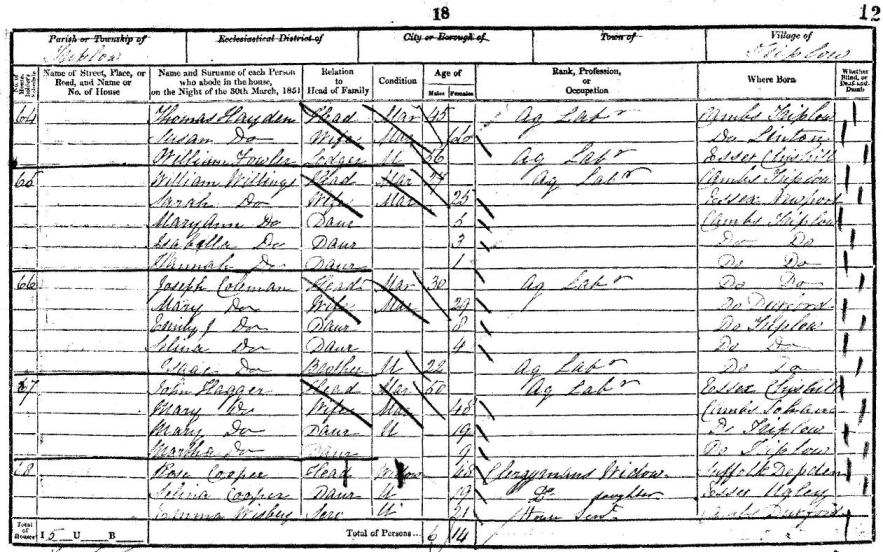 18
12
Parish or Township of Ecclesiastical District of City or Borough of Town of Village of
Triplow Triplow
Name of Street, Place, or Road, and Name or No. of House
Name and Surname of each Person who abode in the house, on the Night of the 30th March, 1851
Relation to Head of Family
Condition
Age of
Males Females
Rank, Profession, or Occupation
Where Born
Whether Blind, or Deaf-and-Dumb
64 Thomas Hayden Head Mar 45 Ag Labr Cambs Triplow
Susan Do Wife Mar Do Linton
William Fowler Lodger U 56 Ag Labr Essex Chishill
65 William Willings Head Mar Ag Labr Cambs Triplow
Sarah Do Wife Mar 25 Essex Newport
Mary Ann Do Daur 5 Cambs Triplow
Isabella Do Daur 3 Do Do
Hannah Do Daur 1 Do Do
66 Joseph Coleman Head Mar 30 Ag Labr Do Do
Mary Do Wife Mar 29 Do Duxford
Emily J Do Daur 8 Do Triplow
Selina Do Daur 4 Do Do
Isaac Do Brother U 22 Ag Labr Do Do
67 John Hagger Head Mar 50 Ag Labr Essex Chishill
Mary Do Wife Mar 48 Cambs
Mary Do Daur U 19 Do Triplow
Martha Do Daur 9 Do Triplow
68 Rose Cooper Head Widow 48 Clergymans Widow Suffolk Depden
Selina Cooper Daur U Do daughter Essex Ugley
Emma Wisbey Serv U 21 House Servt Cambs Duxford
Total of Houses I 5 U B Total of Persons... 6 14